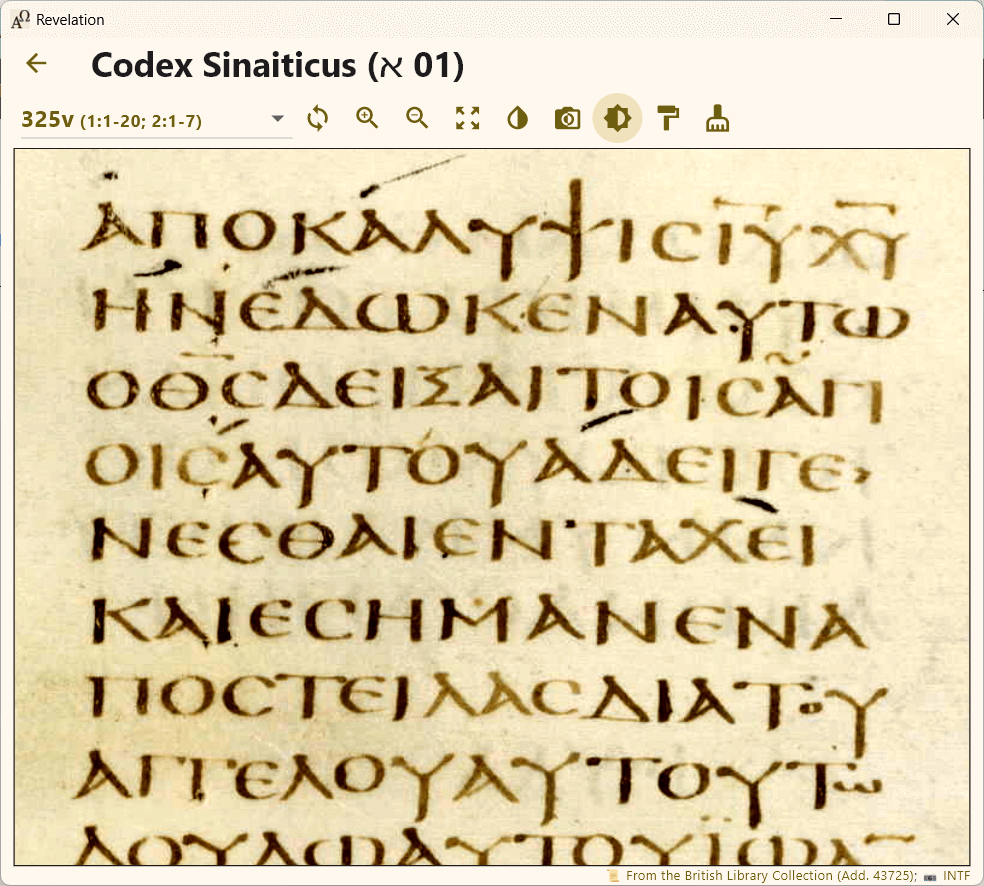 Revelation
Codex Sinaiticus (א 01)
325v (1:1-20; 2:1-7)
ΑΠΟΚΑΛΥΨΙϹΙ̅Υ̅Χ̅Υ̅
ΗΝΕΔΩΚΕΝΑΥΤΩ
ΟΘ̅Ϲ̅ΔΕΙΞΑΙΤΟΙϹΑΓΙ
ΟΙϹΑΥΤΟΥΑΔΕΙΓΕ›
ΝΕϹΘΑΙΕΝ·ΤΑΧΕΙ
ΚΑΙΕϹΗΜΑΝΕΝΑ
ΠΟϹΤΕΙΛΑϹΔΙΑΤΟΥ
ΑΓΓΕΛΟΥΑΥΤΟΥΤΩ
ΔΟΥΛΩΑΥΤΟΥΪΩΑ̅
From the British Library Collection (Add. 43725); INTF